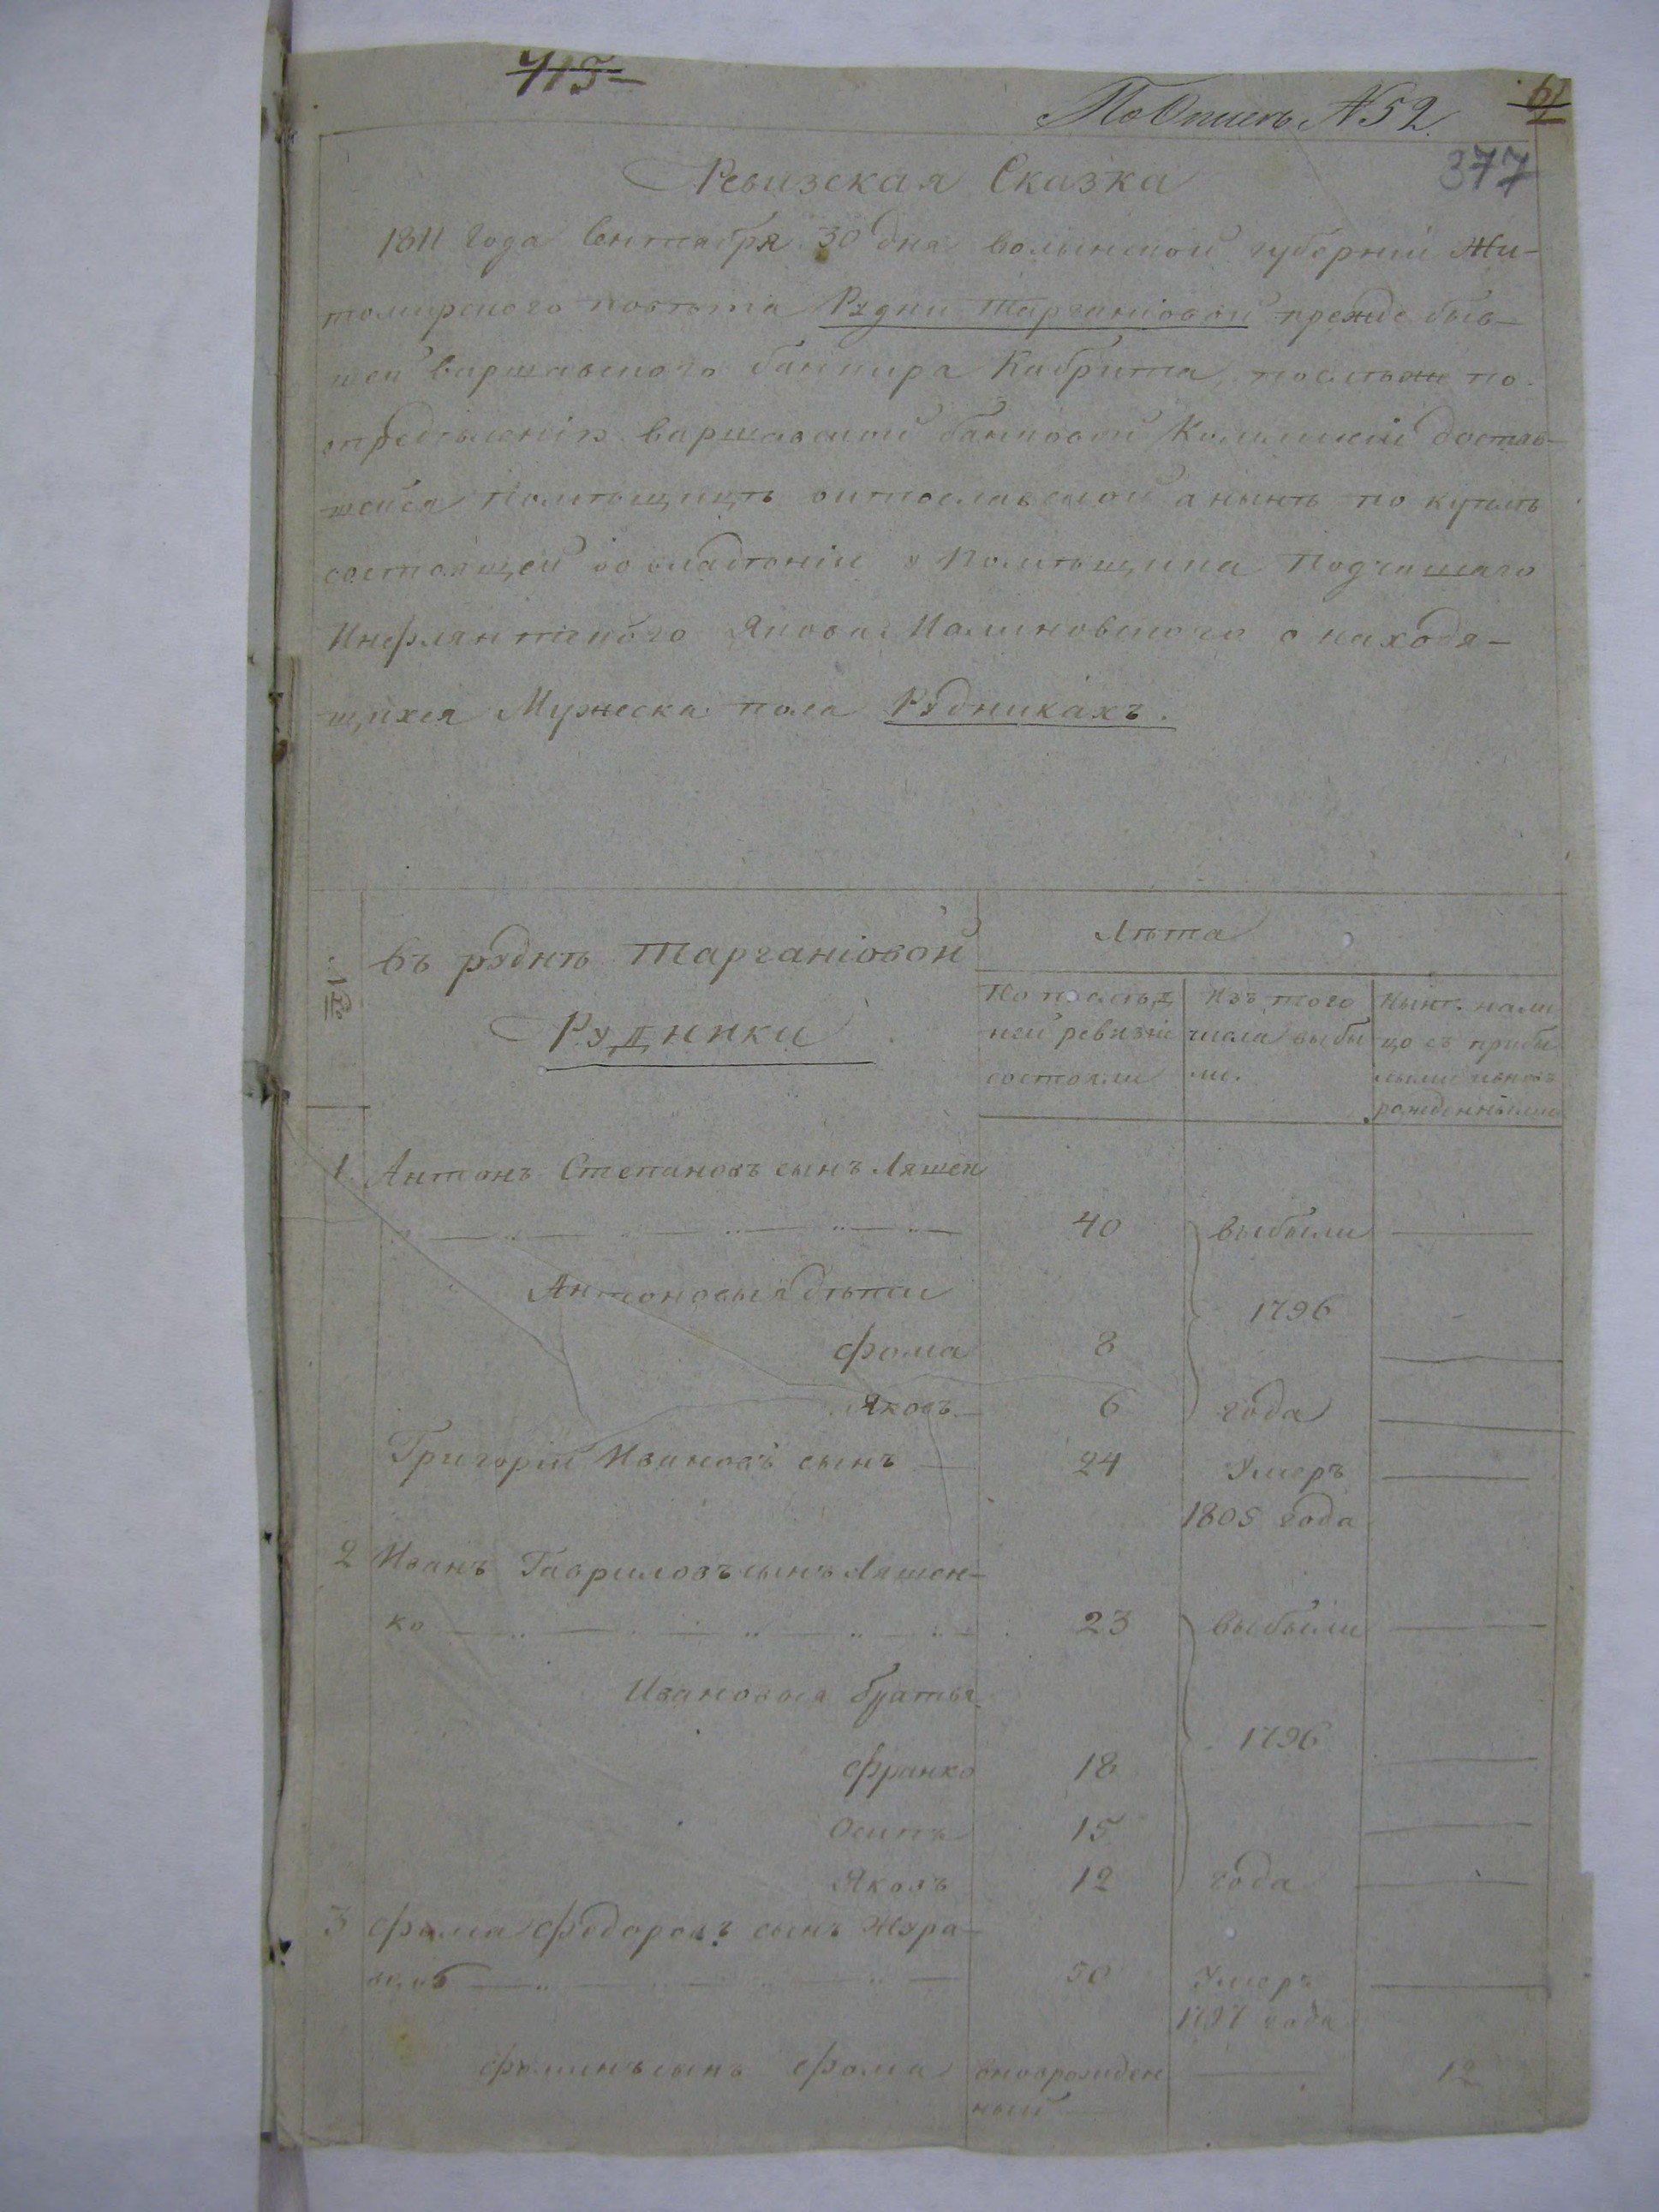 415
По Описи №52
61
377
Ревизская Сказка
1811 года Сентября 30 дня волынской губернии Жи-
томирского повѣта Рудни Тарганіовой прежде быв-
шей варшавского банкира Кабрита, послѣ по
опредѣленію варшавской банковой Коммисіи достав-
шейся Помѣщицѣ а нынѣ по куплѣ
состоящей во владѣніи у Помѣщика Подчашаго
Инфлянтского Якова Малиновского о находя-
щихся Мужеска пола Рудникахъ.
№
Въ руднѣ Тарганіовой
Рудники
Лѣта
По послѣд
ней ревизіи
состояли
Изъ того
числа выбы
ли.
Нынѣ на ли
цо съ прибы
лыми и вновь
рожденными
1 Антонъ Степановъ сынъ Ляшен
40 выбыли
Антоновыя дѣти
1796
Фома 8
Яковъ 6 года
Григорій Ивановъ сынъ 24 Умеръ
1805 года
2 Иванъ Гавриловъ сынъ Ляшен-
ко 23 выбыли
Ивановыя братья
1796
Франко 18
Осипъ 15
Яковъ 12 года
3 Фома Федоровъ сынъ Жура-
50 Умеръ
1797 года
Фоминъ сынъ Фома вновьрожден 12
ный